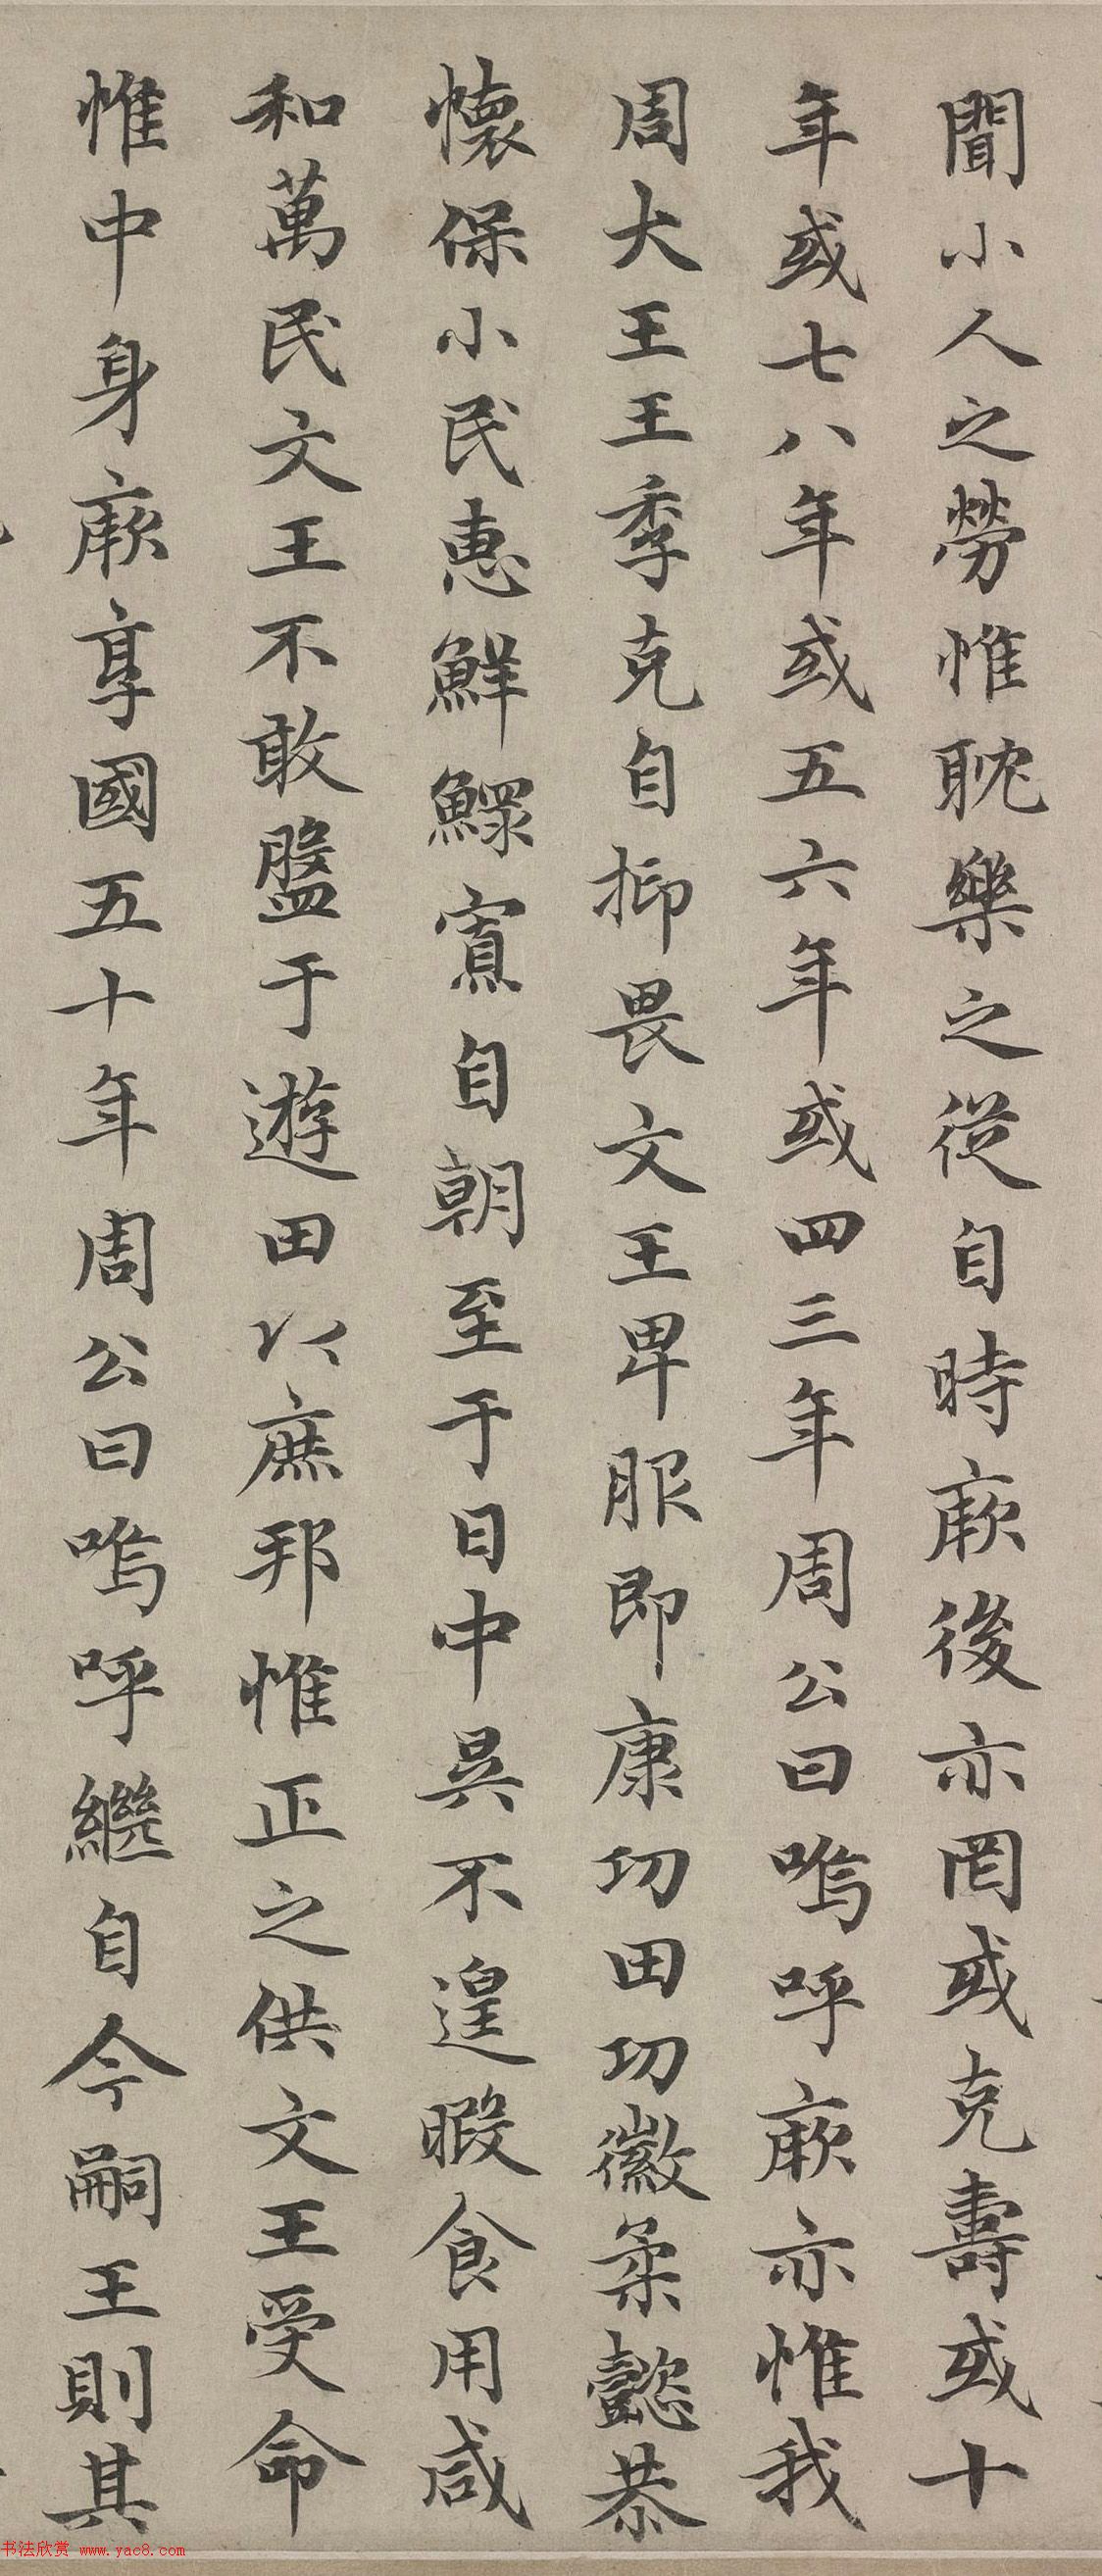 聞小人之勞惟耽樂之從自時厥後亦罔或克壽或十
年或七八年或五六年或四三年周公曰嗚呼厥亦惟我
周大王王季克自抑畏文王卑服即康功田功徽柔懿恭
懷保小民惠鮮鰥寡自朝至于日中昃不遑暇食用咸
和萬民文王不敢盤于遊田以庶邦惟正之供文王受命
惟中身厥享國五十年周公曰嗚呼繼自今嗣王則其
书法欣赏 www.yac8.com